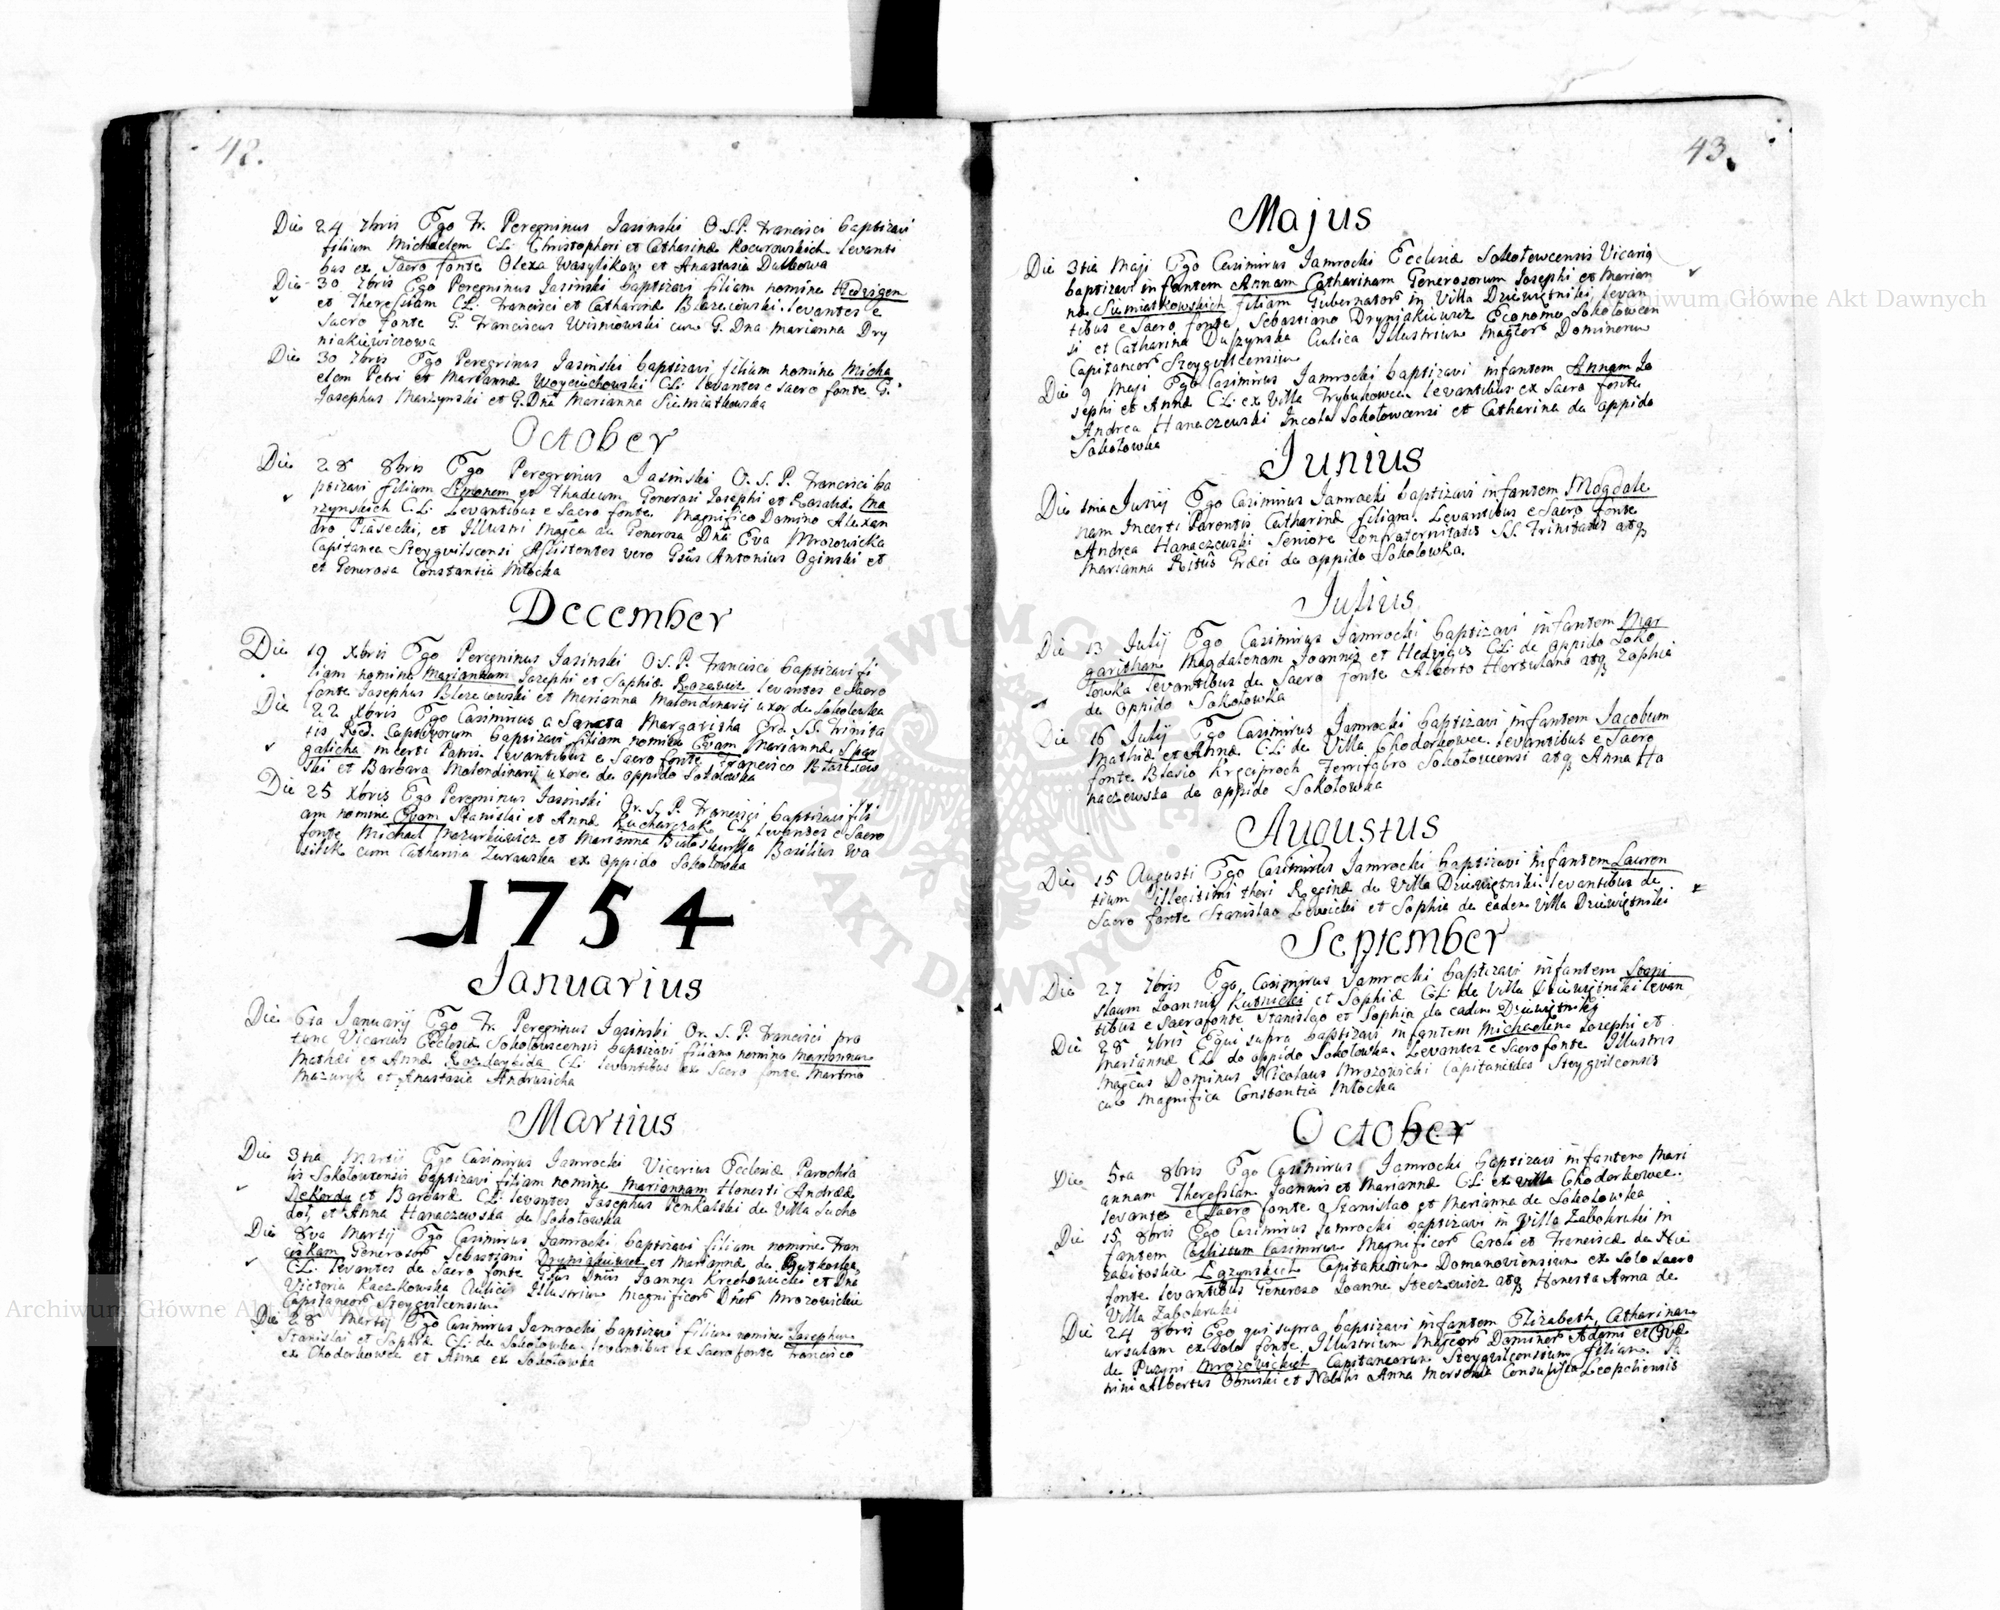 42.
Die 24 7bris Ego Fr. Peregrinus Jasinski O.S.P. Francisci baptizavi
filium Michaelem C.L. Christophori et Catharinæ Kocurowskich levanti
bus ex Sacro fonte Olexa Wasylikow et Anastasia Dutkowa
Die 30 7bris Ego Peregrinus Jasinski baptizavi filiam nomine Hedvigem
et Theressiam C.L. Francisci et Catharinæ Blazeiowski. levantes e
Sacro fonte G. Franciscus Wisniowski cum G. Dna Marianna Dry
niakiewiczowa
Die 30 7bris Ego Peregrinus Jasinski baptizavi filium nomine Micha
elem Petri et Mariannæ Woyciuchowski C.L. levantes e Sacro fonte G.
Josephus Marzynski et G. Dna Marianna Siemiatkowska
October
Die 28 8bris Ego Peregrinus Jasinski O.S.P. Francisci ba
ptizavi filium Simonem et Thadeum Generosi Josephi et Rosaliæ Ma
rzynskich C.L. Levantibus e Sacro fonte Magnifico Domino Alexan
dro Piasecki, et Illustri Magca ac Generosa Dna Eva Mrozowicka
Capitanea Steygvilscensi Assistentes vero Gsus Antonius Oginski et
et Generosa Constantia Młocka
December
Die 19 Xbris Ego Peregrinus Jasinski O.S.P. Francisci baptizavi fi
liam nomine Mariannam Josephi et Sophiæ Kozawicz levantes e Sacro
fonte Josephus Blazeiowski et Marianna Molendinarij uxor de Sokolowka
Die 22 Xbris Ego Casimirus a Sancta Margaritha Ord. SS. Trinita
tis Red. Captivorum baptizavi filiam nomine Evam Mariannæ Szar
gaticha incerti Patris. levantibus e Sacro fonte Francisco Blazeiow
ski et Barbara Molendinarij uxore de oppido Sokolowka
Die 25 Xbris Ego Peregrinus Jasinski Or. S. P. Francisci baptizavi fili
am nomine Evam Stanislai et Annæ Kucharczak C.L. levantes e Sacro
fonte Michael Mazurkiewicz et Marianna Białoskurska Basilius Wa
silik cum Catharina Zurawska ex oppido Sokolowka
1754
Januarius
Die 6ta Januarij Ego Fr. Peregrinus Jasinski Or. S. P. Francisci pro
tunc Vicarius Ecclesiæ Sokołowcensis baptizavi filiam nomine Mariannam
Mathæi et Annæ C.L. levantibus ex Sacro fonte Martino
Mazuryk et Anastasia Andrusicha
Martius
Die 3tia Martij Ego Casimirus Jamrocki Vicarius Ecclesiæ Parochia
lis Sokołowcensis baptizavi filiam nomine Mariannam Honesti Andreæ
Dekorda et Barbaræ C.L. levantes Josephus Penkalski de Villa Sucho
doł, et Anna Hanaczewska de Sokołowka
Die 8va Martij Ego Casimirus Jamrocki baptizavi filiam nomine Fran
ciskam Generosor Sebastiani Dryniakiewicz et Mariannæ de
C.L. levantes de Sacro fonte Gsus Dnus Joannes Krechowiecki et Dna
Victoria Kaczkowska Aulici Illustrium Magnificor Dnor Mrozowickie
Capitaneor Steygvilcensium
Die 28 Martij Ego Casimirus Jamrocki baptizavi filium nomine Josephum
Stanislai et Sophiæ C.L. de Sokołowka. levantibus ex Sacro fonte Francisco
ex Chodorkowce et Anna ex Sokołowka
43.
Majus
Die 3tia Maji Ego Casimirus Jamrocki Ecclesiæ Sokołowcensis Vicarius
baptizavi infantem Annam Catharinam Generosorum Josephi et Marian
næ Siemiatkowskich filiam Gubernator in Villa Dziewiętniki levan
tibus e Sacro fonte Sebastiano Dryniakiewicz Economo Sokołowcen
si et Catharina Duszynska Aulica Illustrium Magcor Dominorum
Capitaneor Steygvilcensium
Die 9 Maji Ego Casimirus Jamrocki baptizavi infantem Annam Jo
sephi et Annæ C.L. ex Villa Trybuhowce. levantibus ex Sacro fonte
Andrea Hanaczewski Incola Sokołowcensi et Catharina de oppido
Sokołowka
Junius
Die 1ma Junij Ego Casimirus Jamrocki baptizavi infantem Magdale
nam Incerti Parentis Catharinæ filiam. Levantibus e Sacro fonte
Andrea Hanaczewski Seniore Confraternitatis SS. Trinitatis atq
Marianna Ritûs Græci de oppido Sokołowka.
Julius
Die 13 Julij Ego Casimirus Jamrocki baptizavi infantem Mar
garitham Magdalenam Joannis et Hedvigis C.L. de oppido Soko
łowka levantibus de Sacro fonte Alberto Hortulano atq Zophia
de oppido Sokołowka
Die 16 Julij Ego Casimirus Jamrocki baptizavi infantem Jacobum
Mathiæ et Annæ C.L. de Villa Chodorkowce. levantibus e Sacro
fonte Blasio Kręciproch Ferrifabro Sokołowcensi atq Anna Ha
naczewska de oppido Sokołowka
Augustus
Die 15 Augusti Ego Casimirus Jamrocki baptizavi infantem Lauren
tium Illegitimi thori Reginæ de Villa Dziewiętniki. levantibus de
Sacro fonte Stanislao Lewicki et Sophia de eadem Villa Dziewiętniki
September
Die 27 7bris Ego Casimirus Jamrocki baptizavi infantem Stani
slaum Joannis Kusnicki et Sophiæ C.L. de Villa Dziewiętniki levan
tibus e Sacro fonte Stanislao et Sophia de eadem Dziewiętniki
Die 28 7bris Ego qui supra baptizavi infantem Michaelem Josephi et
Mariannæ C.L. de oppido Sokołowka. Levantes e Sacro fonte Illustris
Magcus Dominus Nicolaus Mrozowicki Capitaneides Steygvilcensis
cum Magnifica Constantia Młocka
October
Die 5ta 8bris Ego Casimirus Jamrocki baptizavi infantem Mari
annam Theressiam Joannis et Mariannæ C.L. ex Villa Chodorkowce.
levantes e Sacro fonte Stanislao et Marianna de Sokołowka
Die 15 8bris Ego Casimirus Jamrocki baptizavi in Villa Zabokruki in
fantem Calistum Casimirum Magnificor Caroli et Franciscæ de Nie
zabitoskie Łązynskich Capitaneorum Domanoviensium ex solo Sacro
fonte levantibus Generoso Joanne Steczewicz atq Honesta Anna de
Villa Zabokruki
Die 24 8bris Ego qui supra baptizavi infantem Elizabeth, Catharinam
Ursulam ex solo fonte Illustrium Magcor Dominor Adami et Evæ
de Puzyni Mrozowickich Capitaneorum Steygvilcensium filiam. Pa
trini Albertus Obniski et Nobilis Anna Consulissa Leopoliensis
Archiwum Główne Akt Dawnych
Archiwum Główne Akt Dawnych
ARCHIWUM GŁÓWNE AKT DAWNYCH